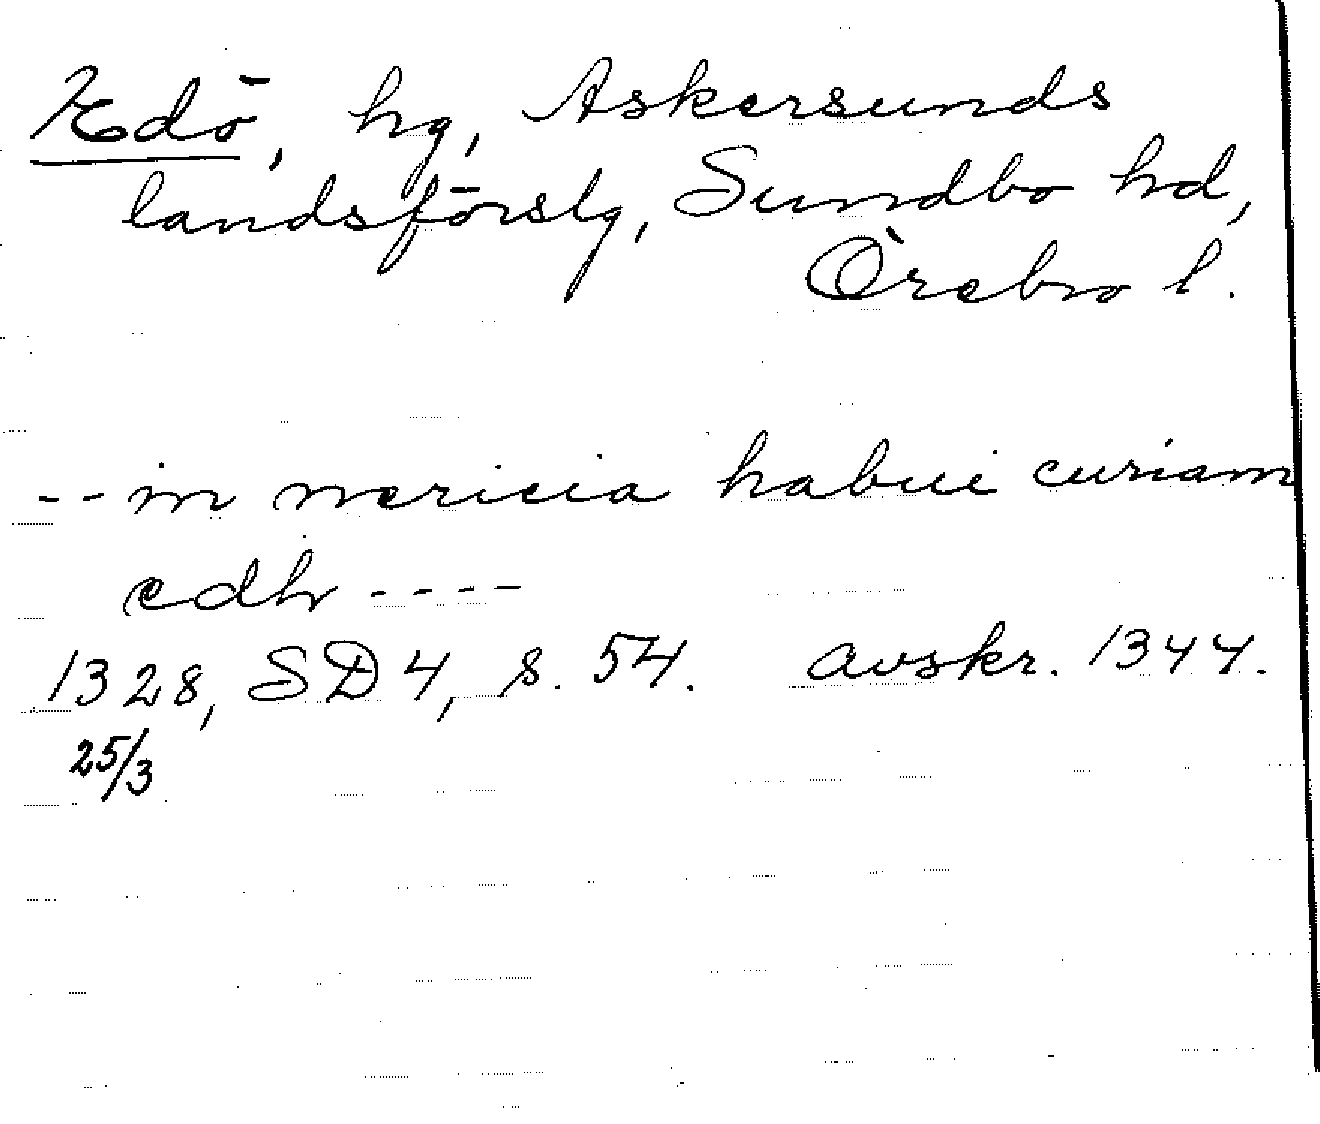 Edö, hg, Askersunds
landsförslg, Sundbo hd,
Örebro l.
-- in nericia habui curiam
edh ----
1328, SD 4, s. 54. avskr. 1344.
25/3